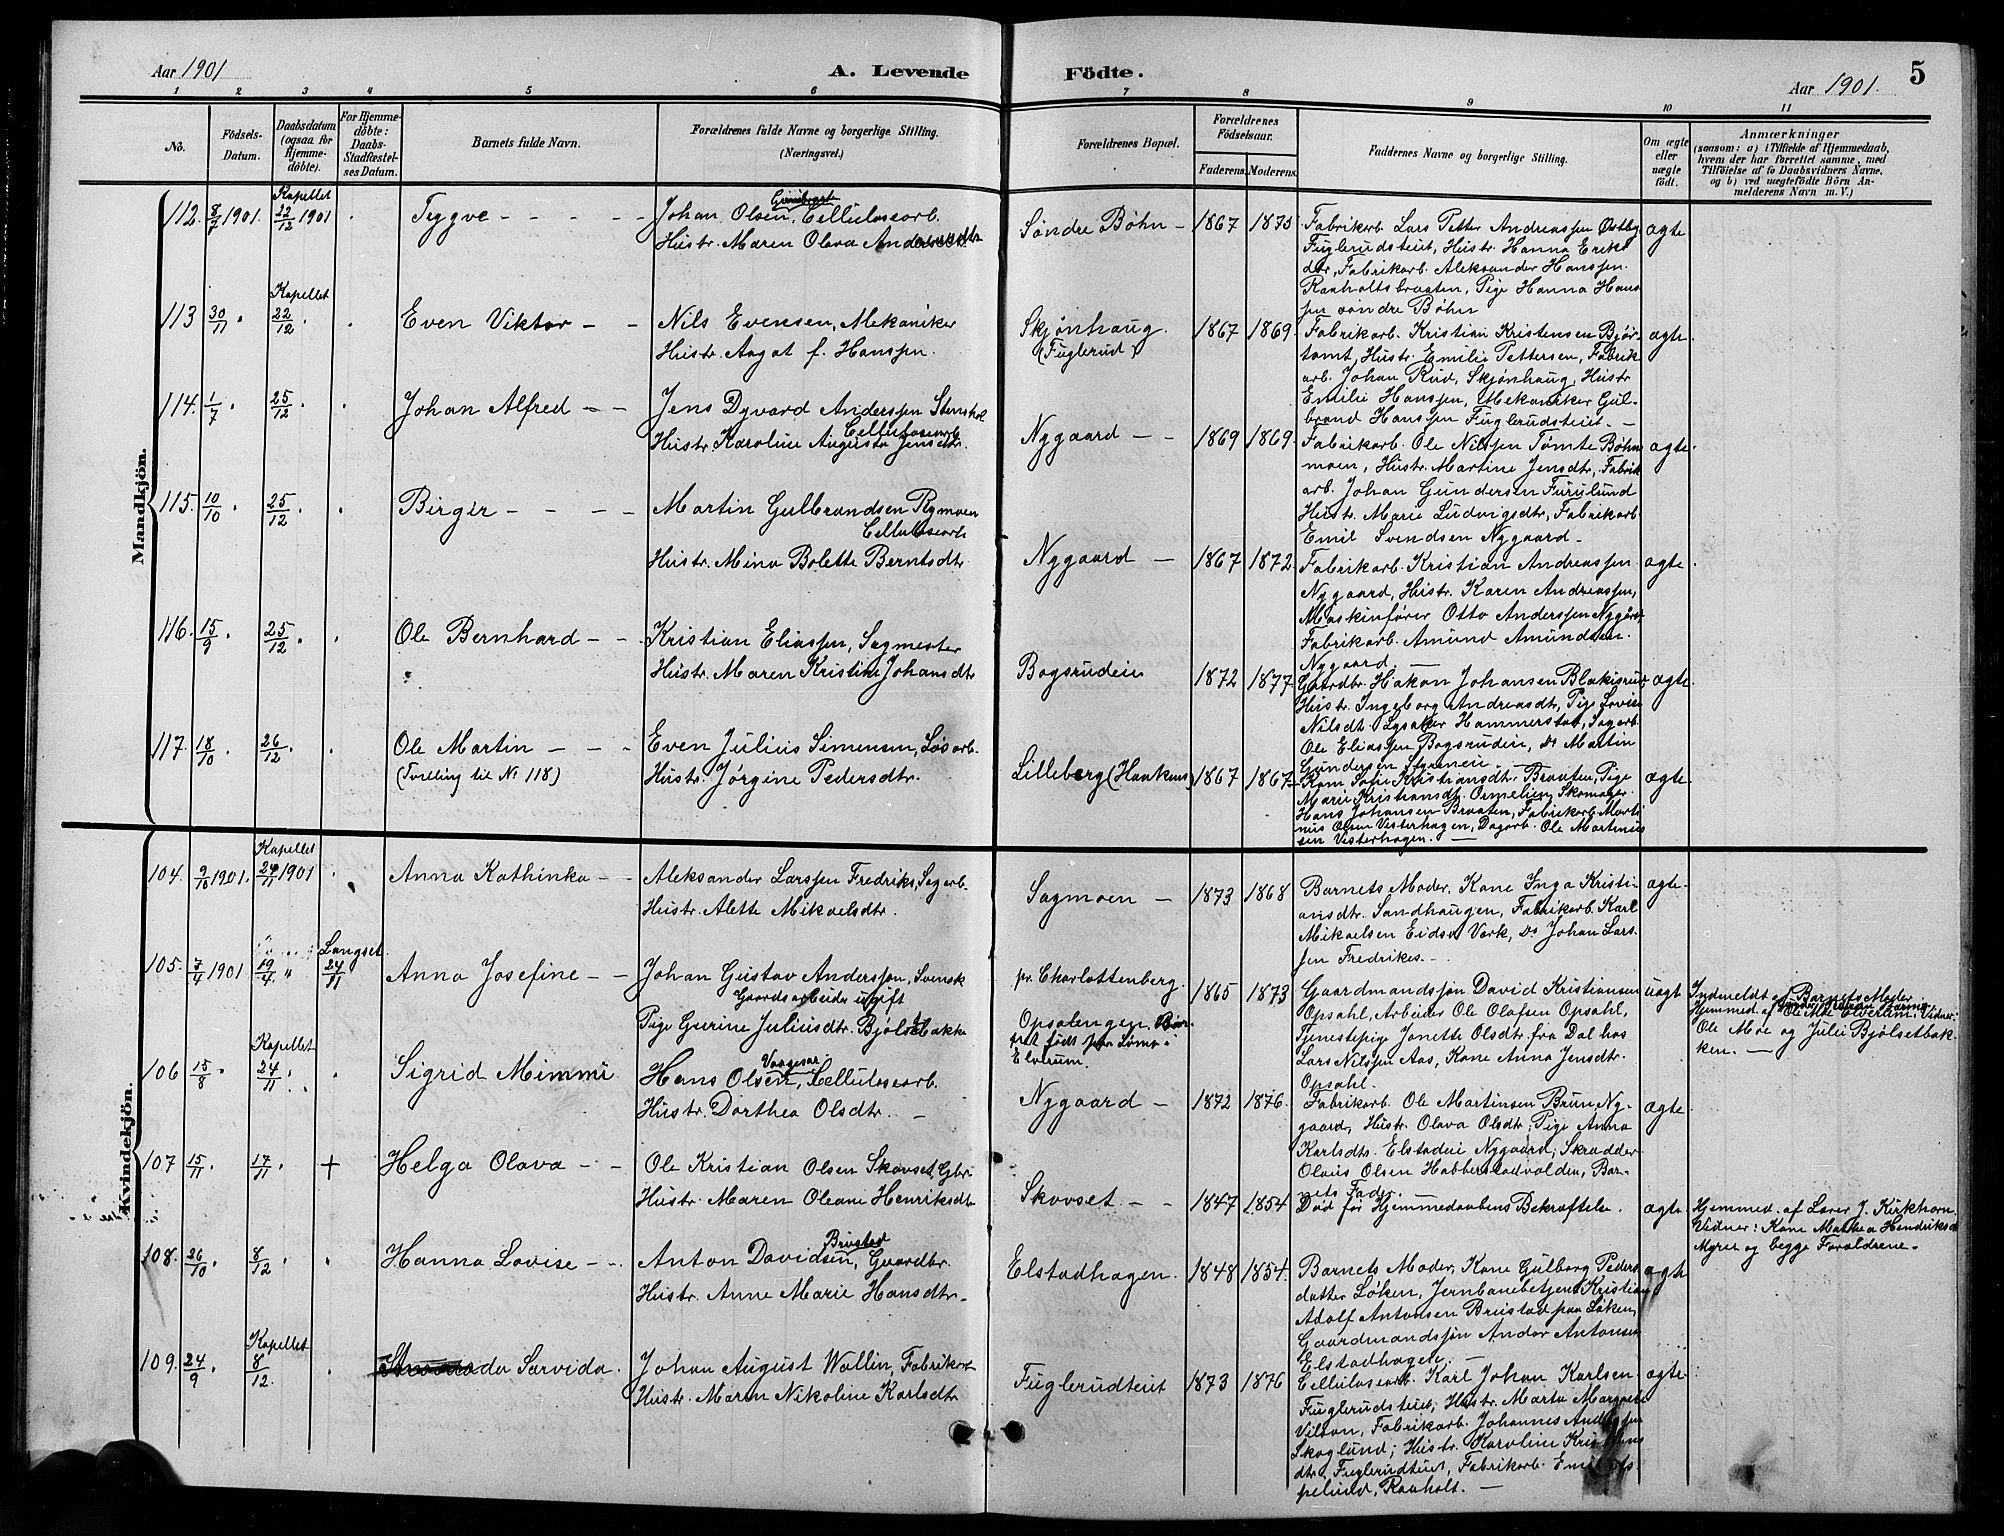 Aar 1901
A. Levende
Födte.
Aar 1901.
5
1 2 3 4 5 6 7 8 9 10 11
No.
Födsels-Datum.
Daabsdatum (ogsaa for Hjemmedöbte).
For Hjemmedöbte: Daabs-Stadfæstelses Datum.
Barnets fulde Navn.
Forældrenes fulde Navne og borgerlige Stilling.
(Næringsvei.)
Forældrenes Bopæl.
Forældrenes Födselsaar.
Faderens. Moderens.
Faddernes Navne og borgerlige Stilling.
Om ægte eller uægte födt.
Anmærkninger
(saasom: a) i Tilfælde af Hjemmedaab,
hvem der har forrettet samme, med
Tilföielse af to Daabsvidners Navne,
og b) ved uægtefödte Börn Anmelderens Navn m. V.)
Mandkjön.
112. 8/7 1901. Kapellet 22/12 1901 Tryggve
Johan Olsen, Cellulosearb.
Hustr. Maren Olava Andersdtr
Søndre Bøhn 1867 1875
Fabrikarb. Lars Petter Andreassen Østby
Fuglerudsteiet, Hustr. Hanna Eriks
dtr, Fabrikarb. Aleksander Hanssen
Raaholtsbraaten, Pige Hanna Hans
sen søndre Bøhn
ægte
113 30/11 Kapellet 22/12 Even Viktor
Nils Evensen, Mekaniker
Hustr. Aagot f. Hanssen.
Skjønhaug (Fuglerud) 1867 1869.
Fabrikarb. Kristian Kristensen Bjør-
tomt, Hustr. Emilie Pettersen, Fabrik
arb. Johan Rud, Skjønhaug, Hustr
Emilie Hanssen, Mekaniker Gul-
brand Hanssen Fuglerudsteiet.
ægte
114. 1/7 25/12 Johan Alfred
Jens Dyvard Anderssen Stenshol
Cellulosearb
Hustr. Karoline Augusta Jensdtr.
Nygaard 1869 1869.
Fabrikarb. Ole Nilssen Tømte Bøhn
moen, Hustr. Martine Jensdtr, Fabrik
arb. Johan Gundersen Furulund
Hustr. Marie Ludvigsdtr, Fabrikarb
Emil Svendsen Nygaard.
ægte
115. 10/10 25/12 Birger
Martin Gulbrandsen Rymoen
Cellulosearb
Hustr. Mina Bolette Berntsdtr.
Nygaard 1867 1872
Fabrikarb. Kristian Andreassen
Nygaard, Hustr. Karen Andreassen,
Maskinfører Otto Anderssen Nygård
Fabrikarb. Amund Amundsen.
Nygaard.
ægte
116. 15/9 25/12 Ole Bernhard
Kristian Eliassen, Sagmester
Hustr. Maren Kristine Johansdtr
Bogsrudeie 1872 1877
Gaardbr. Håkon Johansen Blakisrud
Hustr. Ingeborg Andreasdtr, Pige Lovise
Nilsdt. Lysaker Hammerstad, Sagarb
Ole Eliassen Bogsrudeie, Do Martin
Gundersen
ægte
117. 18/10 26/12 Ole Martin
(Tvilling til No 118)
Even Julius Simensen, Løsarb.
Hustr. Jørgine Pedersdtr.
Lilleberg (Haakens) 1867 1867
Kone Sofie Kristiansdtr. Braaten, Pige
Marie Kristiansdt. Ormelien, Skomager
Hans Johansen Braaten, Fabrikarb. Marti
nius Olsen Vesterhagen, Dagarb. Ole Martinius
sen Vesterhagen.
ægte
Kvindekjön.
104. 9/10 1901. Kapellet 24/11 1901 Anna Kathinka
Aleksander Larssen Fredriks, Sagarb.
Hustr. Alette Mikaelsdtr.
Sagmoen 1873 1868
Barnets Moder, Kone Inga Kristi-
ansdtr. Sandhaugen, Fabrikarb. Karl
Mikaelsen Eidsv. Værk, Do Johan Lars-
sen Fredrikes.
ægte
105. 7/4 1901 19/4 Langset 24/11 Anna Josefine
Johan Gustav Anderssen, Svensk
Gaardsarbeider ugift
Pige Gurine Juliusdtr. Bjølsetbakke
pr. Charlottenberg.
Opsalengen
Elverum.
1865 1873
Gaardmandssøn David Kristiansen
Opsahl, Arbeider Ole Olafsen Opsahl,
Tjenestepige Jonette Olsdtr. fra Dal hos
Lars Nilssen Aas, Kone Anna Jensdtr.
Opsahl.
uægt
Indmeldt af Barnets Moder
Hjemmed. af Vidner:
Ole Moe og Julie Bjølsetbak-
ken.
106 15/8 Kapellet 24/11 Sigrid Mimmi
Hans Olsen, Cellulosearb.
Hustr. Dorthea Olsdtr.
Nygaard 1872 1876.
Fabrikarb. Ole Martinsen Brun, Ny-
gaard, Hustr. Olava Olsdtr; Pige Anna
Karlsdtr. Elstadeie Nygaard, Skrædder
Olaus Olsen Habberstadvolden, Bar-
nets Fader.
ægte
107 15/11 17/11 + Helga Olava
Ole Kristian Olsen Skovset, Gbr.
Hustr. Maren Oleane Henriksdtr
Skovset 1847 1854
Død før Hjemmedaabens Bekræftelse.
ægte
Hjemmed. af Lærer J. Kirkhorn
Vidner: Kone Marthea Hendriksd
Myrer og begge Forældrene.
108. 26/10 8/12 Hanna Lovise
Anton Davidsen Brustad, Gaardbr.
Hustr. Anne Marie Hansdtr.
Elstadhagen. 1848 1854.
Barnets Moder, Kone Gulborg Peders
datter Løken, Jernbanebetjent Kristian
Adolf Antonsen Brustad paa Løken,
Gaardmandssøn Andor Antonsen
Elstadhagen.
ægte
109. 24/9 Kapellet 8/12 Sarvida.
Johan August Wallin, Fabrikarb
Hustr. Maren Nikoline Karlsdtr
Fuglerudteiet 1873 1876
Cellulosearb. Karl Johan Karlsen
Fuglerudsteiet, Hustr. Marta Margrete
Vilson, Fabrikarb. Johannes Anderssen
Skoglund; Hustr. Karoline Kristians
dtr. Fuglerudteiet, Fabrikarb. Emil
pelund, Raaholt.
ægte